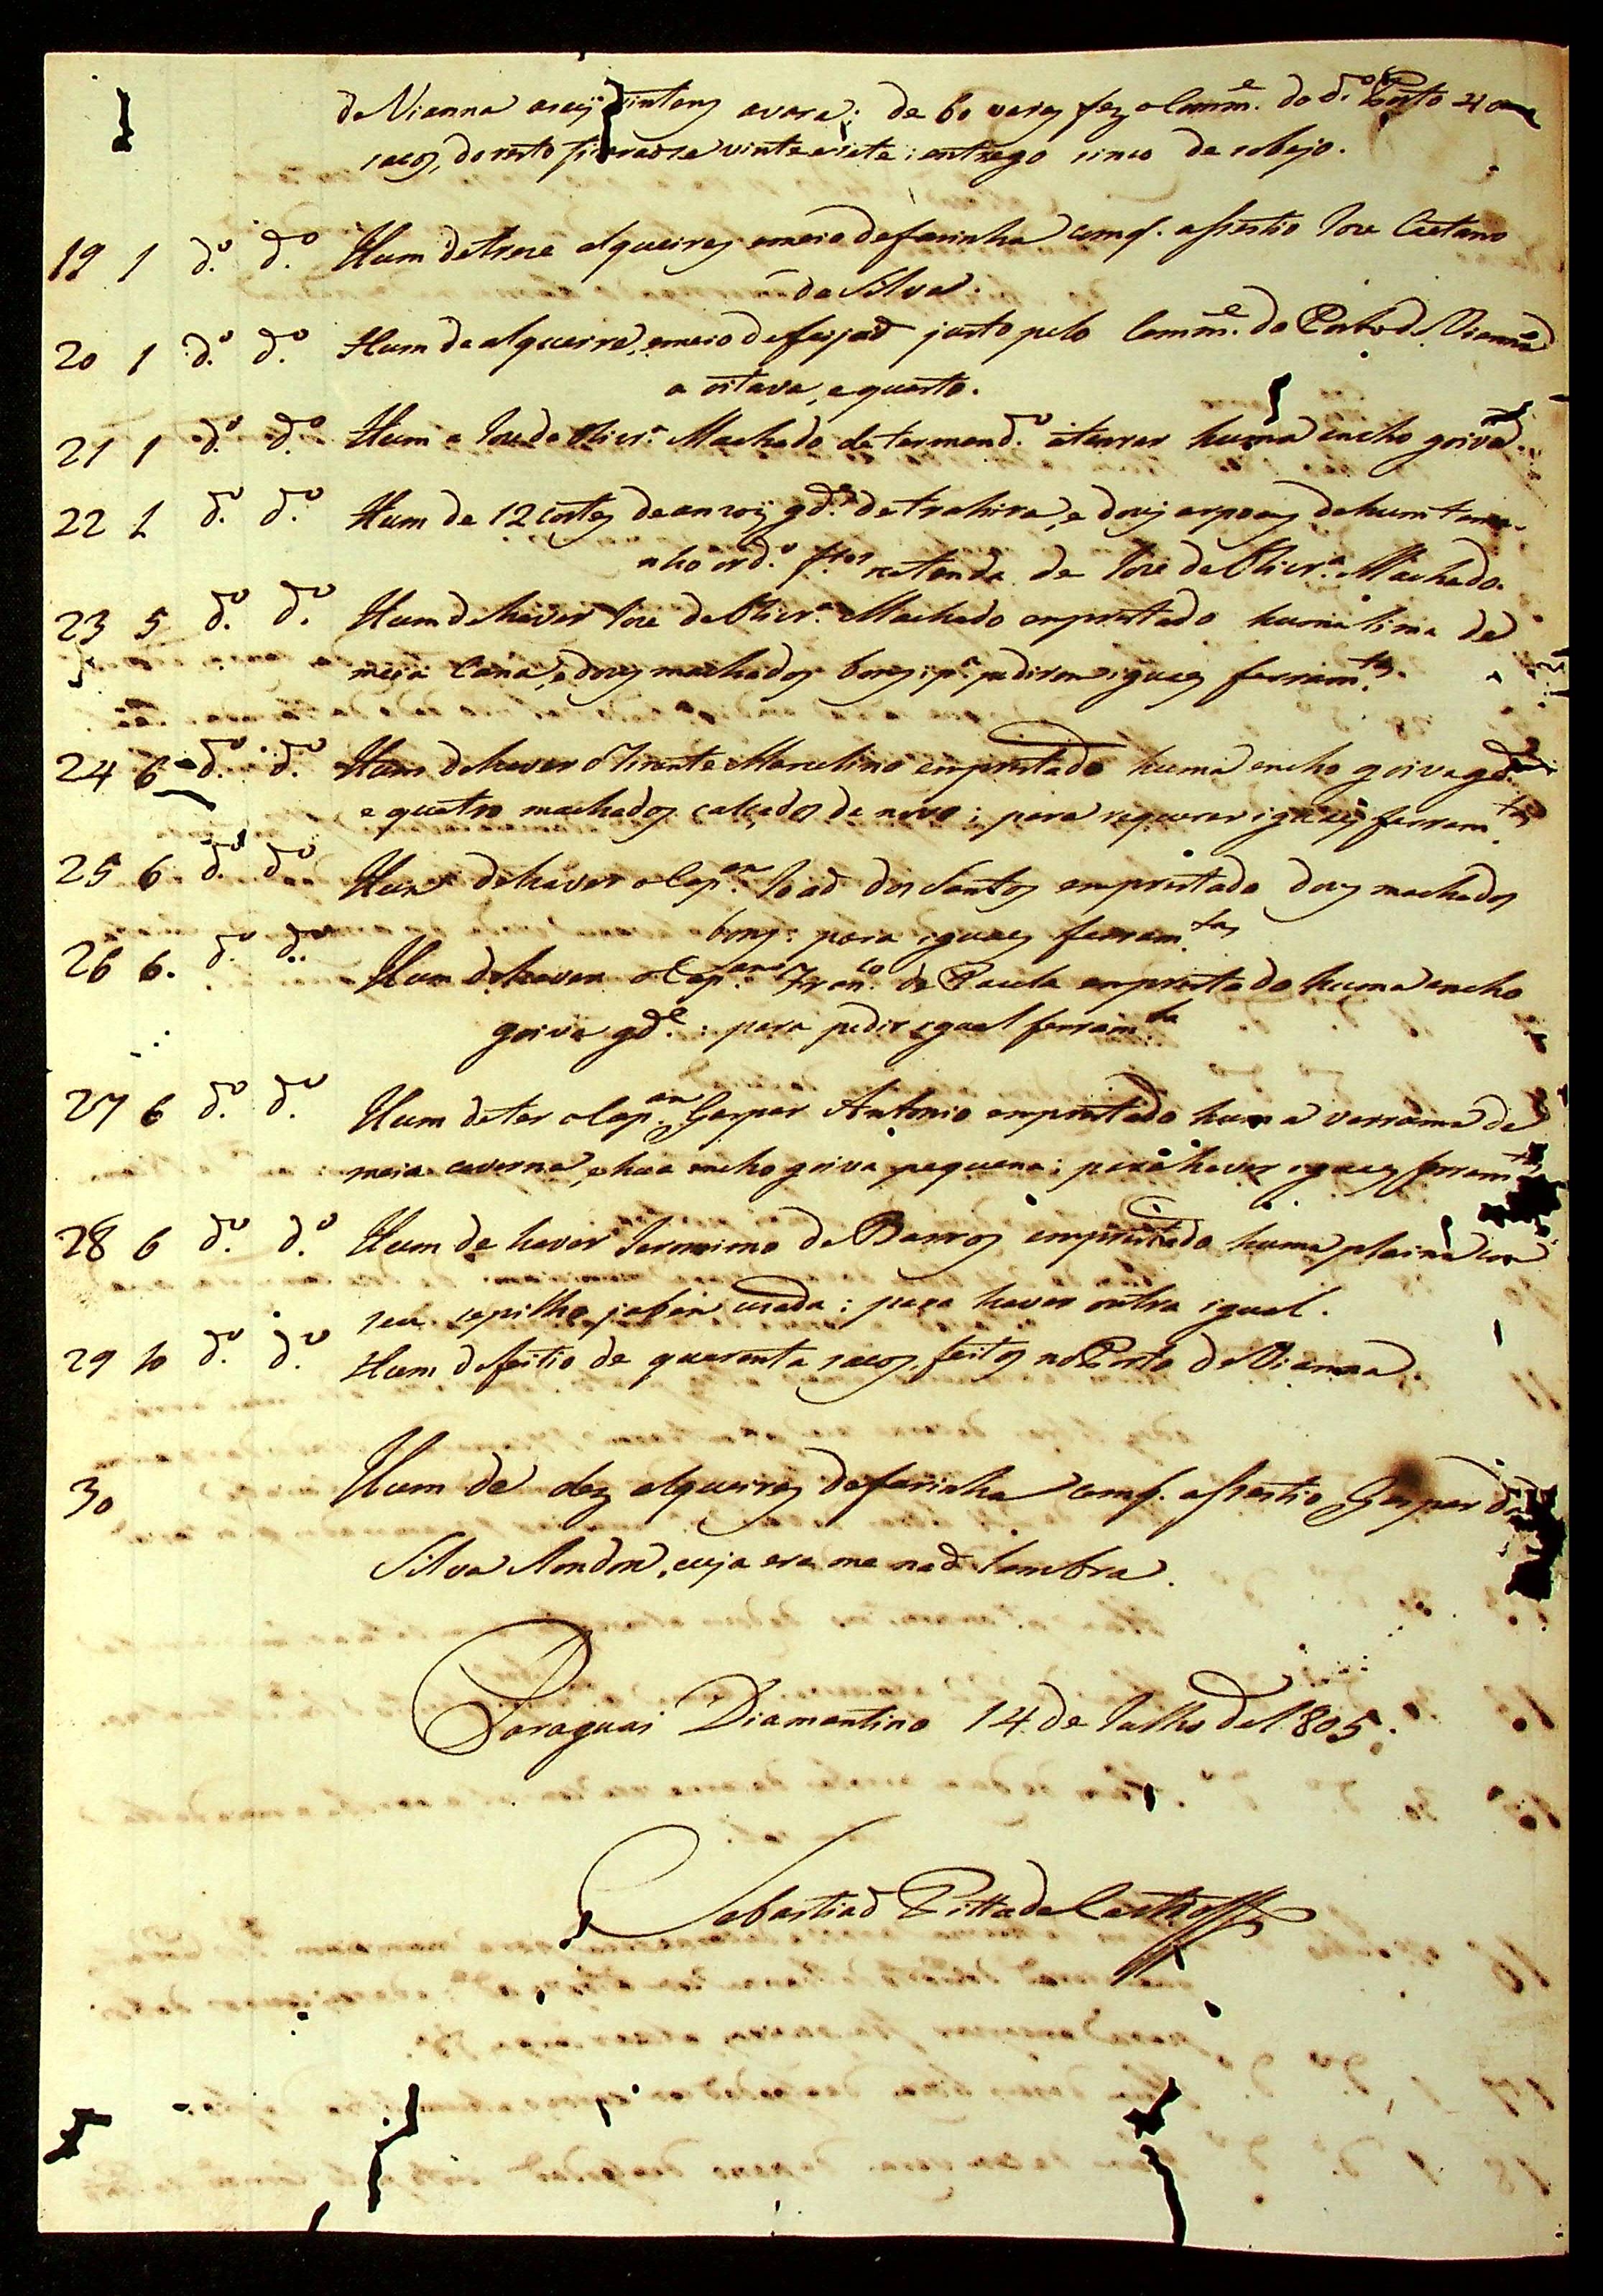 de Vianna aseis vinteny avara: de 60 varas fez o Comm.e do d.o Porto 40
sacos, do resto tiraose vinte e siete; entrego sinco de sobejo.
19 1 d.o d.o Hum de treze alqueires emeio defarinha comq. assestio Joze Caetano
da Silva.
20 1 d.o d.o Hum de alqueire, emeio defeijaõ justo pelo Comm.e do Porto de Vianna
a oitava, e quarto.
21 1 d.o d.o Hum a Joze de Oliver.a Machado de termend.o huma encho goiva.
22 1 d.o d.o Hum de 12 cortes de anzois gd.es detrahira, e dois arpoes dehum tama-
nho ord.o f.tos natenda de Joze de Oliver.a Machado.
23 5 d.o d.o Hum dehaver Joze de Oliver.a Machado emprestado huma lima de
meia Cana, e dois machados bons; p.a pedirem iguaes ferram.tas
24 6 d.o d.o Hum dehaver o Tinente Marcelino emprestado huma encho goiva gd.e
e quatro machados calçados de novo; para requerer iguaes ferram.tas
25 6 d.o d.o Hum dehaver o Cap.am Joaõ dos Santos emprestado dois machados
bons: para iguaes ferram.tas
26 6. d.o d.o Hum dehaver o Cap.am Fran.co de Paula emprestado huma encho
goiva gd.e: para pedir igual ferram.ta
27 6 d.o d.o Hum deter o Cap.am Gaspar Antonio emprestado huma verruma de
meia caverna, e hua encho goiva pequena; para haver iguaes ferram.tas
28 6 d.o d.o Hum de haver Jeronimo de Barros emprestado huma plaina com
seu sepilho, usada; para haver outra igual.
29 10 d.o d.o Hum defeitio de quarenta sacos, feitos no Porto de Vianna.
30 Hum de dez alqueires defarinha comq. assestio Gaspar da
Silva Rondon, cuja era me naõ lembra.
Paraguai Diamantino 14 de Julho de 1805.
Sebastiaõ Pitta de Castro